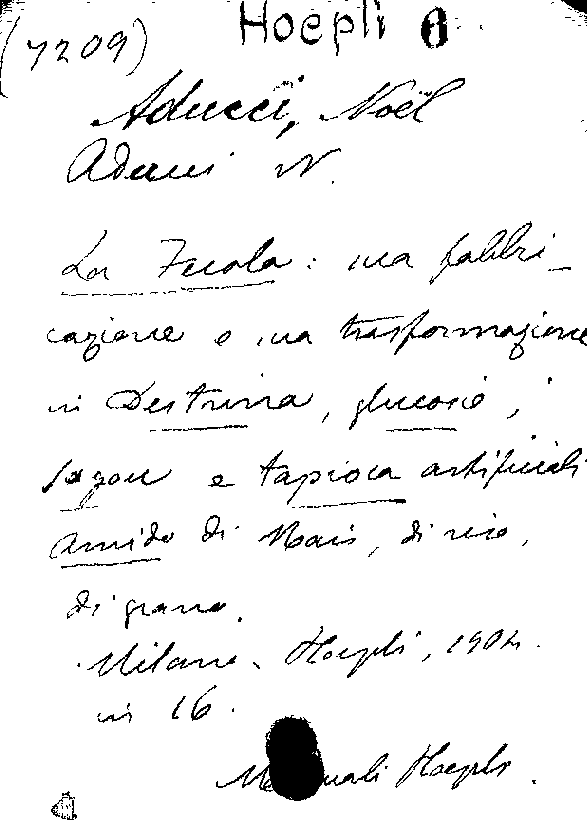 (7209)
Hoepli 6
Aducci, Noël
Aducci N.
La Fecola: sua fabbri-
cazione e sua trasformazione
in Destrina, glucosio,
sagou e tapioca artificiali
Amido di Mais, di riso,
di grano.
Milano, Hoepli, 1904.
in 16.
Manuali Hoepli.